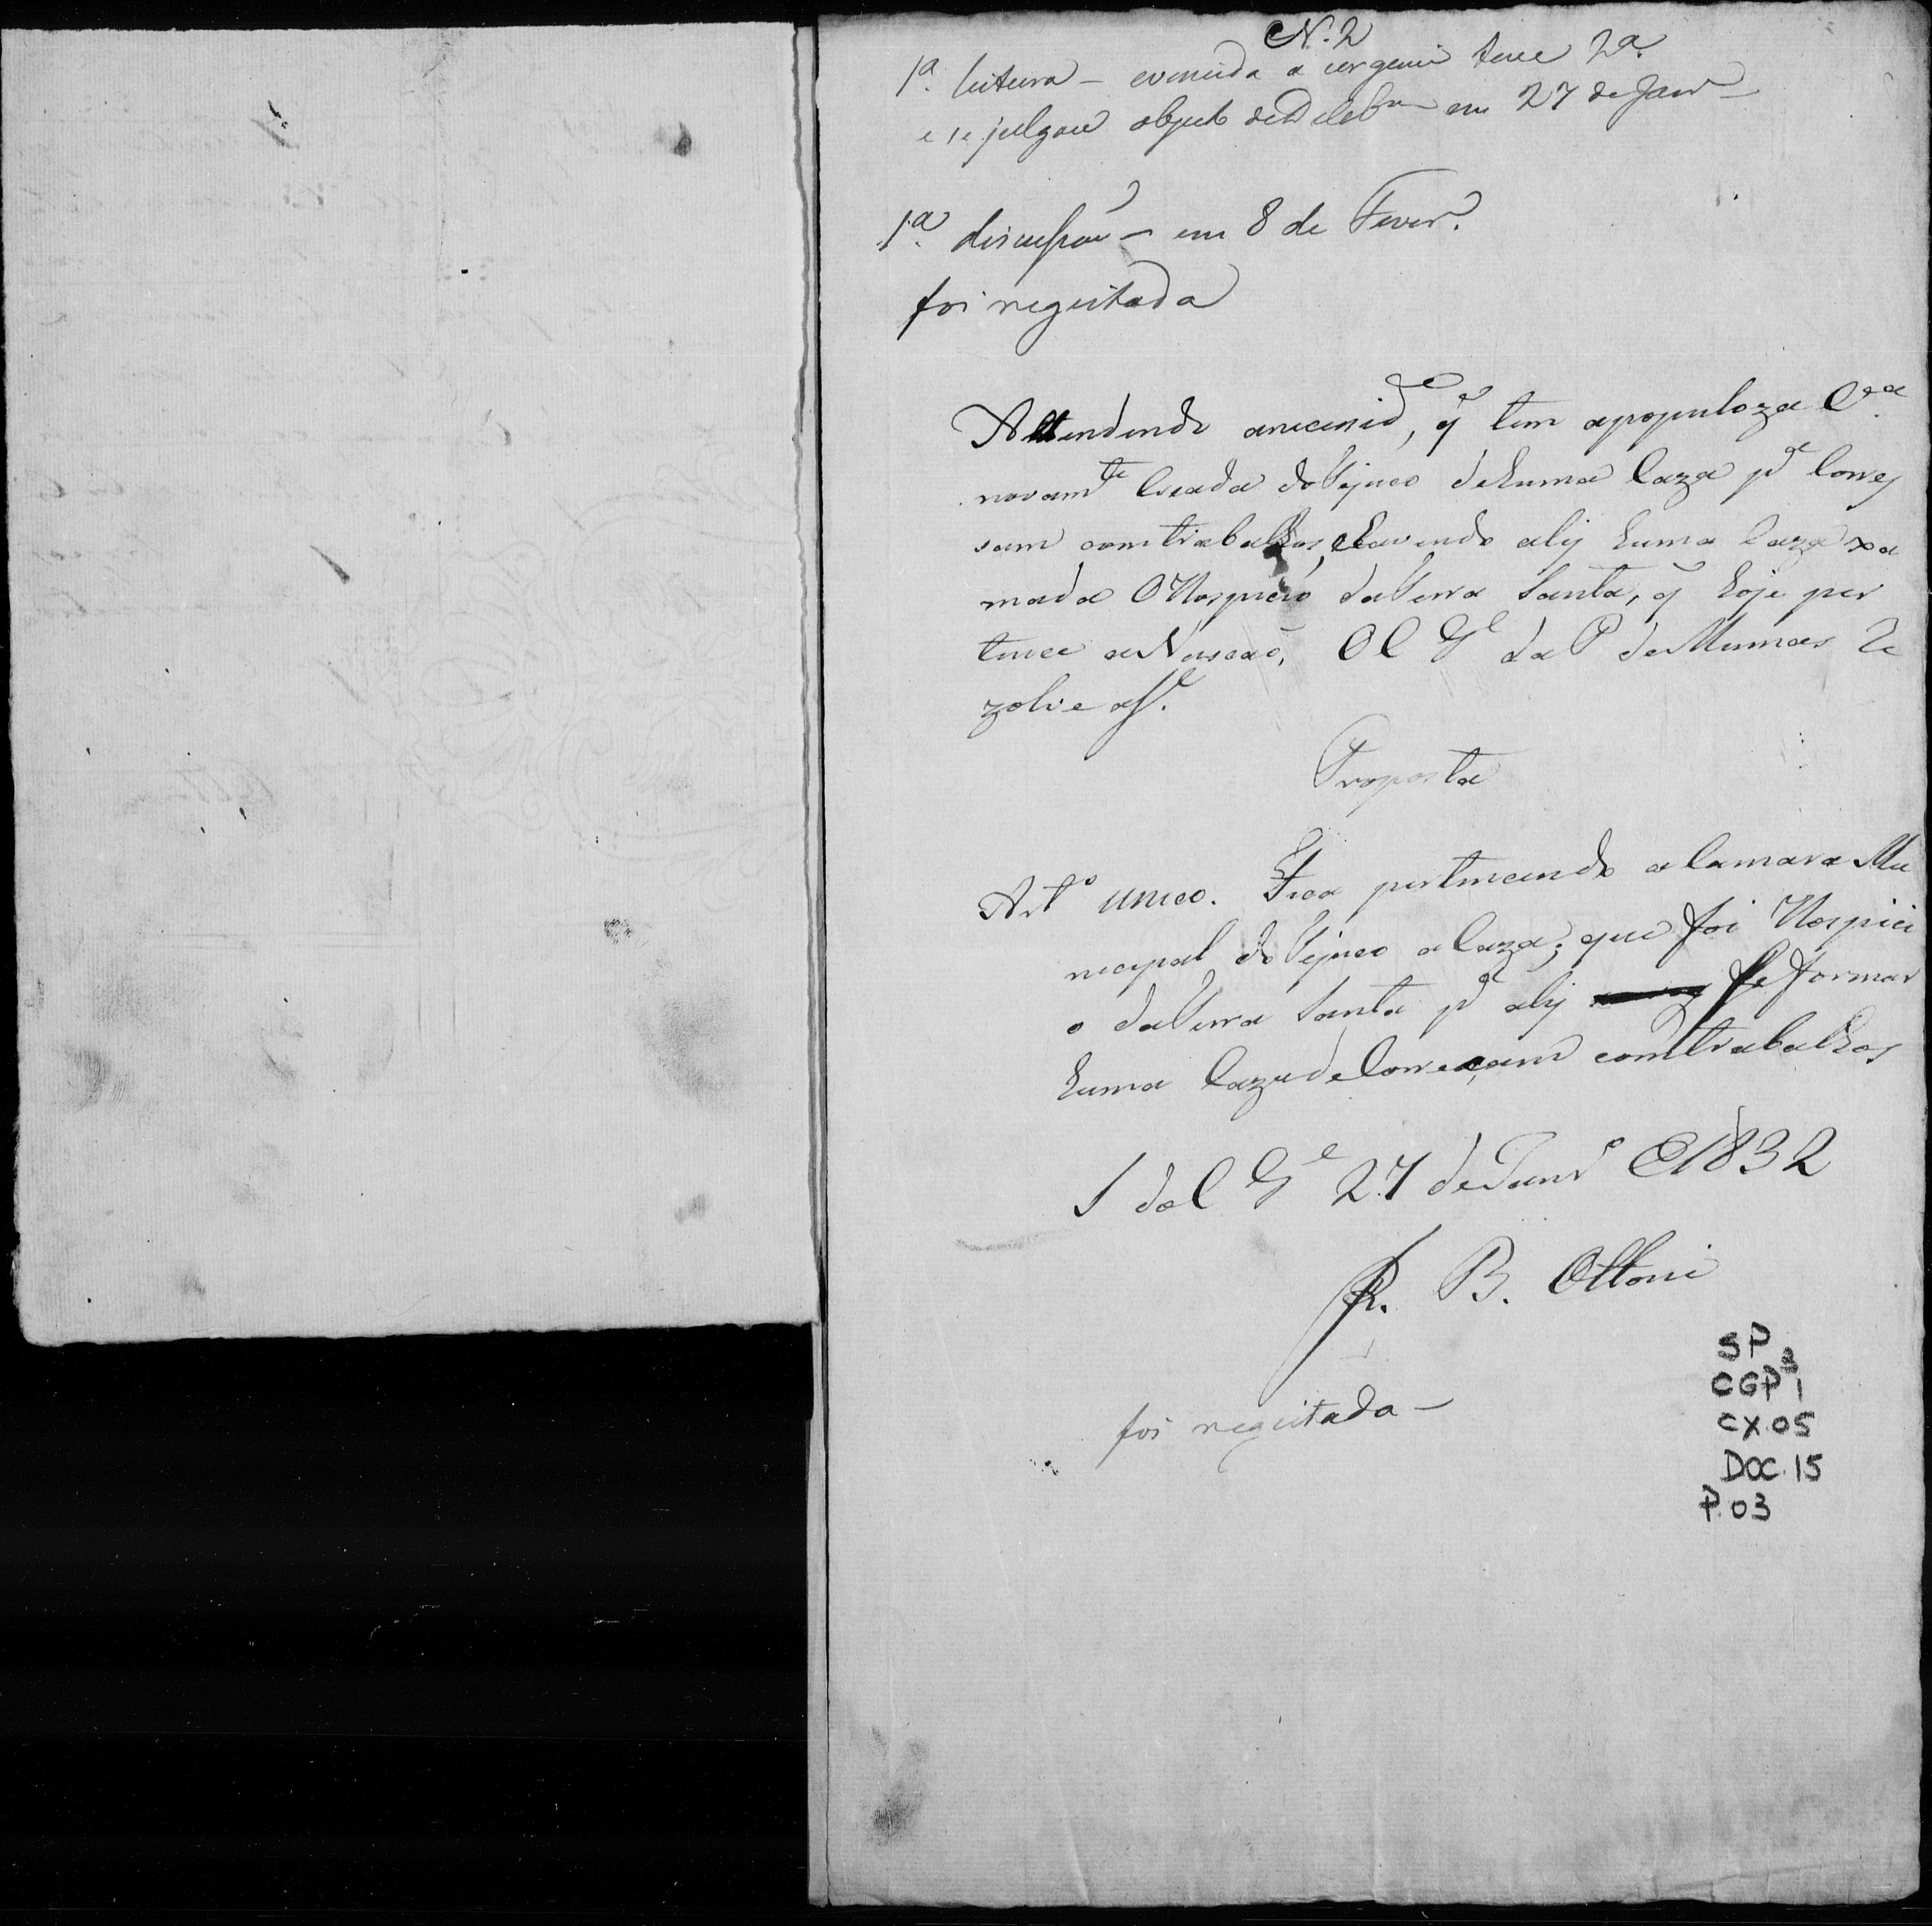 N. 2
1ª leitura – e vencida a urgencia teve 2ª
e se julgou objecto de Delebram em 27 de Janro
1ª discussão – em 8 de Feverº
foi regeitada
Attendendo a necesside, q̃ tem a populoza Vª
novamte Creada do Tejuco de huma Caza pª Correj
sam com trabalhos, e havendo alij huma Caza xa
mada O Hospicio da Terra Santa, q̃ hoje per
tence a Nascaõ, O C Gl da P de Minnas Re
zolve
Proposta
Artº unico. Fica pertencendo a Camara Mu
nicipal do Tejuco a Caza; que foi Hospici
o da Terra Santa pª alij se formar
huma Caza de Correçam com trabalhos
S do C Gl 27 de Janrº 1832
B. Ottoni
foi regeitada –
SP
CGP² 1
CX. 05
DOC. 15
P. 03